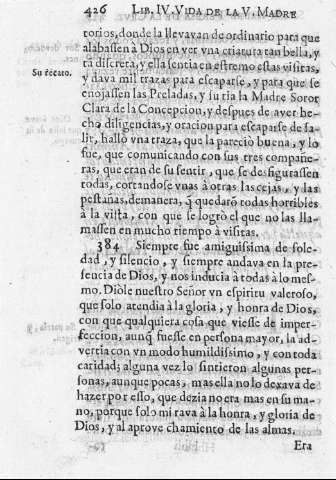 426 LIB. IV. VIDA DE LA V. MADRE
torios, donde la llevavan de ordinario para que
alabassen à Dios en ver vna criatura tan bella, y
tã discreta, y ella sentia en estremo estas visitas,
Su recato.
y dava mil trazas para escaparse, y para que se
enojassen las Preladas, y su tia la Madre Soror
Clara de la Concepcion, y despues de aver he-
cho diligencias, y oracion para escaparse de sa-
lir, hallò vna traza, que la pareciò buena, y lo
fue, que comunicando con sus tres compañe-
ras, que eran de su sentir, que se desfigurassen
todas, cortandose vnas à otras las cejas, y las
pestañas, demanera, q̃ quedarõ todas horribles
à la vista, con que se logrò el que no las lla-
massen en mucho tiempo à visitas.
384 Siempre fue amiguissima de sole-
dad, y silencio, y siempre andava en la pre-
sencia de Dios, y nos inducia à todas à lo mes-
mo. Diòle nuestro Señor vn espiritu valeroso,
que solo atendia à la gloria, y honra de Dios,
con que qualquiera cosa que viesse de imper-
feccion, aunq̃ fuesse en persona mayor, la ad-
vertia con vn modo humildissimo, y con toda
caridad; alguna vez lo sintieron algunas per-
sonas, aunque pocas, mas ella no lo dexava de
hazer por esso, que dezia no era mas en su ma-
no, porque solo mirava à la honra, y gloria de
Dios, y al aprovechamiento de las almas.
Era